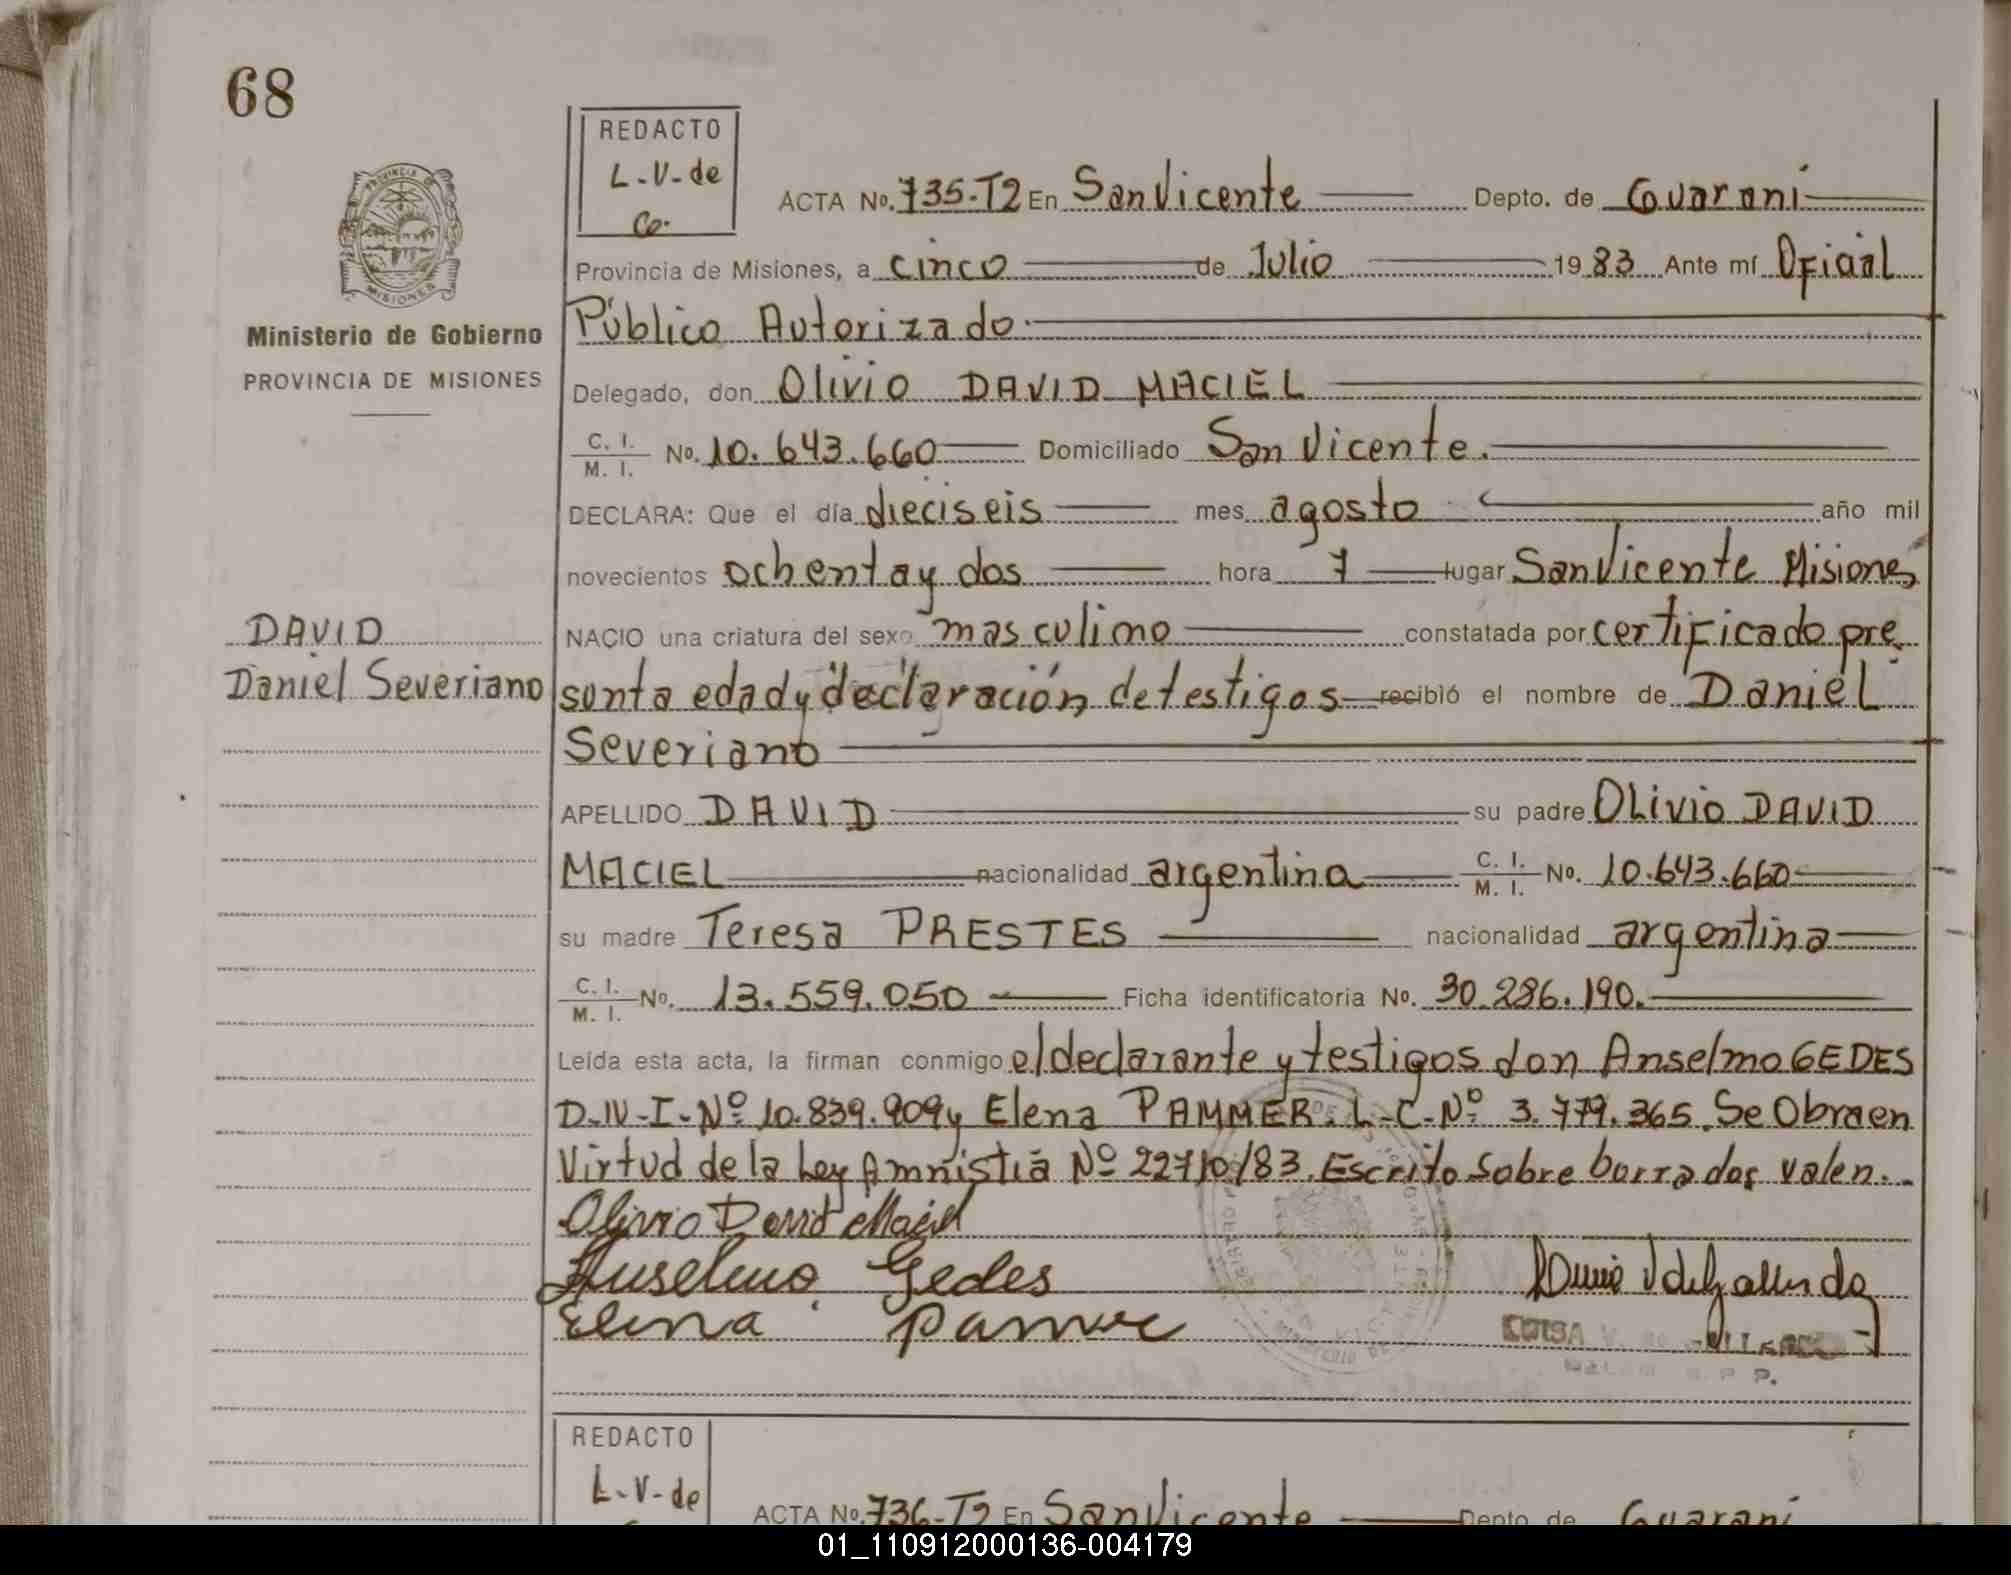 68
REDACTO
L-V-de
Co.
PROVINCIA DE
MISIONES
Ministerio de Gobierno
PROVINCIA DE MISIONES
ACTA No. 735-T2 En San Vicente Depto. de Guaraní
Provincia de Misiones, a cinco de Julio 1983 Ante mí Oficial
Público Autorizado.
Delegado, don Olivio DAVID MACIEL
C. I. / M. I. No. 10.643.660 Domiciliado San Vicente.
DECLARA: Que el día dieciseis mes agosto año mil
novecientos ochenta y dos hora 7 lugar San Vicente Misiones
DAVID
Daniel Severiano
NACIO una criatura del sexo masculino constatada por certificado pre
sunta edad y declaración de testigos recibió el nombre de Daniel
Severiano
APELLIDO DAVID su padre Olivio DAVID
MACIEL nacionalidad argentina C. I. / M. I. No. 10.643.660
su madre Teresa PRESTES nacionalidad argentina
C. I. / M. I. No. 13.559.050 Ficha identificatoria No. 30.286.190.
Leída esta acta, la firman conmigo el declarante y testigos don Anselmo GEDES
D-N-I-Nº 10.839.909 y Elena PAMMER. L-C-Nº 3.779.365. Se Obra en
Virtud de la Ley Amnistiá Nº 22710/83. Escrito Sobre borrados valen.-
Olivio David Maciel
Anselmo Gedes
Elena Pamer
LUISA V.
REDACTO
L-V-de
ACTA No. 736-T2 En San Vicente Depto. de Guaraní
01_110912000136-004179